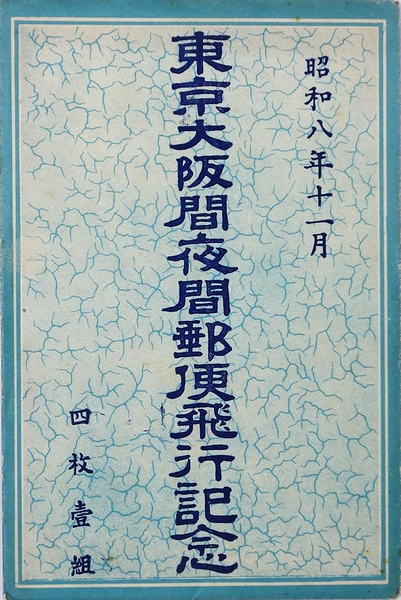 昭和八年十一月
東京大阪間夜間郵便飛行記念
四枚壹組